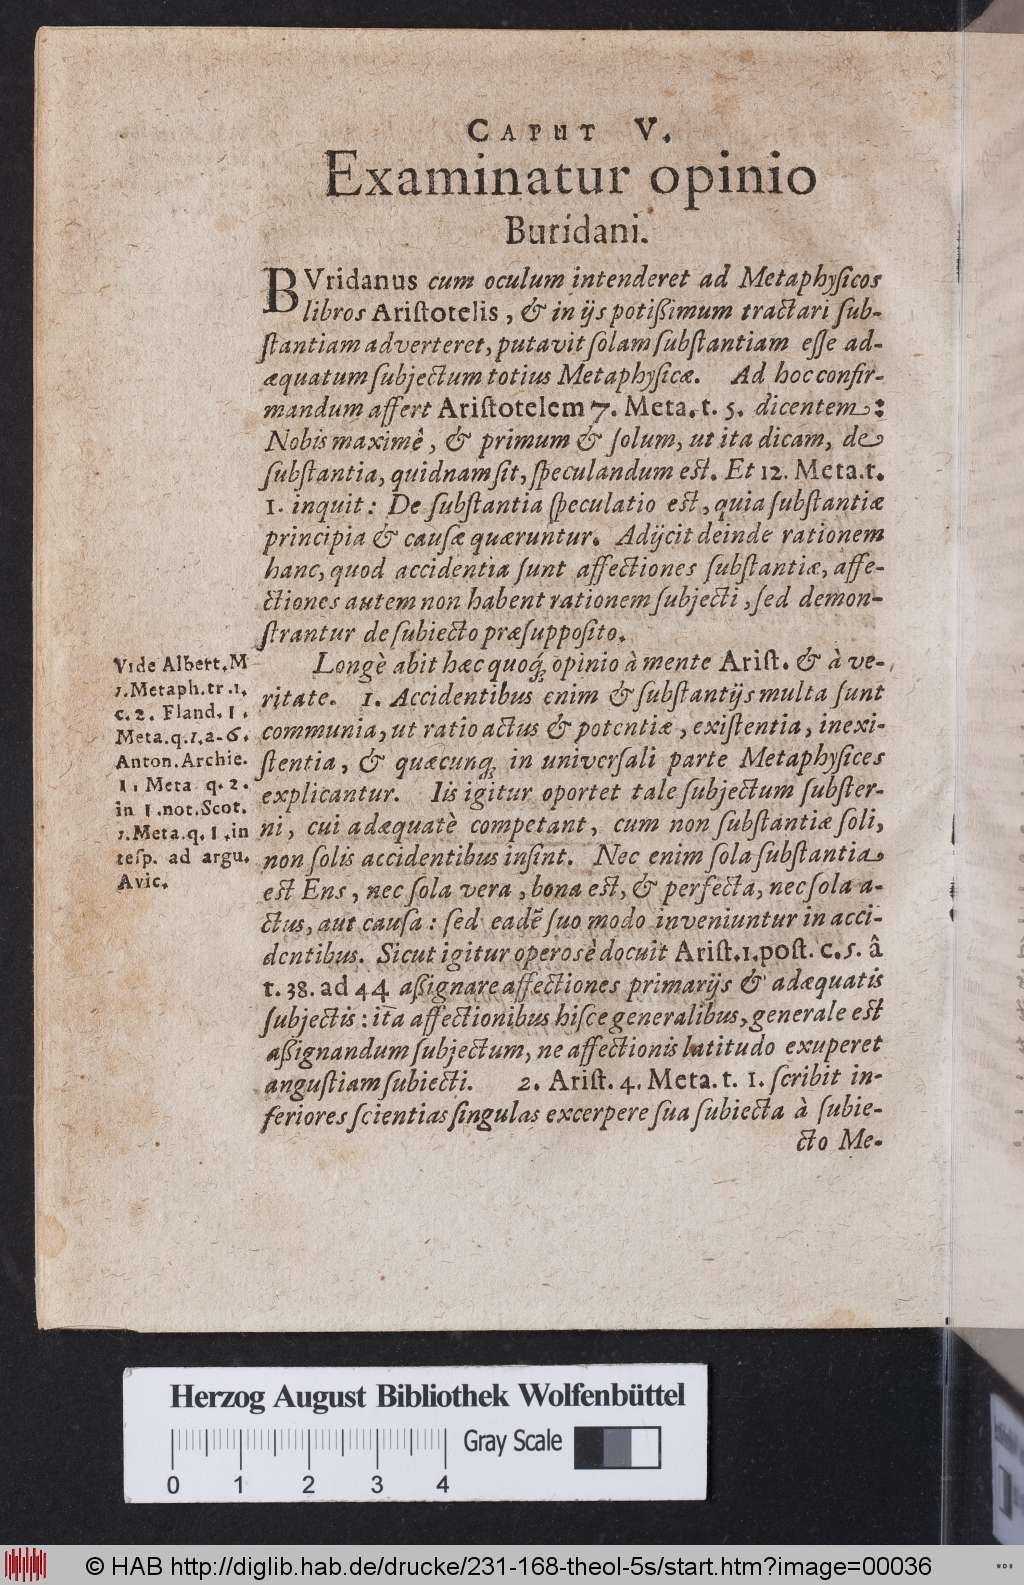 CAPUT V.
Examinatur opinio
Buridani.
BUridanus cum oculum intenderet ad Metaphysicos
libros Aristotelis, & in ijs potißimum tractari sub-
stantiam adverteret, putavit solam substantiam esse ad-
æquatum subjectum totius Metaphysicæ. Ad hoc confir-
mandum affert Aristotelem 7. Meta. t. 5. dicentem:
Nobis maximê, & primum & solum, ut ita dicam, de
substantia, quidnam sit, speculandum est. Et 12. Meta. t.
1. inquit: De substantia speculatio est, quia substantiæ
principia & causæ quæruntur. Adijcit deinde rationem
hanc, quod accidentia sunt affectiones substantiæ, affe-
ctiones autem non habent rationem subjecti, sed demon-
strantur de subiecto præsupposito.
Longè abit hæc quoq́; opinio à mente Arist. & à ve-
ritate. 1. Accidentibus enim & substantijs multa sunt
communia, ut ratio actus & potentiæ, existentia, inexi-
stentia, & quæcunq; in universali parte Metaphysices
explicantur. Iis igitur oportet tale subjectum subster-
ni, cui adæquatè competant, cum non substantiæ soli,
non solis accidentibus insint. Nec enim sola substantia
est Ens, nec sola vera, bona est, & perfecta, nec sola a-
ctus, aut causa: sed eadẽ suo modo inveniuntur in acci-
dentibus. Sicut igitur operosè docuit Arist. 1. post. c. 5. â
t. 38. ad 44 aßignare affectiones primarijs & adæquatis
subjectis: ita affectionibus hisce generalibus, generale est
aßignandum subjectum, ne affectionis latitudo exuperet
angustiam subiecti. 2. Arist. 4. Meta. t. 1. scribit in-
feriores scientias singulas excerpere sua subiecta à subie-
cto Me-
Vide Albert. M
1. Metaph. tr. 1.
c. 2. Fland. 1.
Meta. q. 1. a. 6.
Anton. Archie.
1. Meta q. 2.
in 1. not. Scot.
1. Meta. q. 1. in
resp. ad argu.
Avic.
Herzog August Bibliothek Wolfenbüttel
Gray Scale
0 1 2 3 4
© HAB http://diglib.hab.de/drucke/231-168-theol-5s/start.htm?image=00036